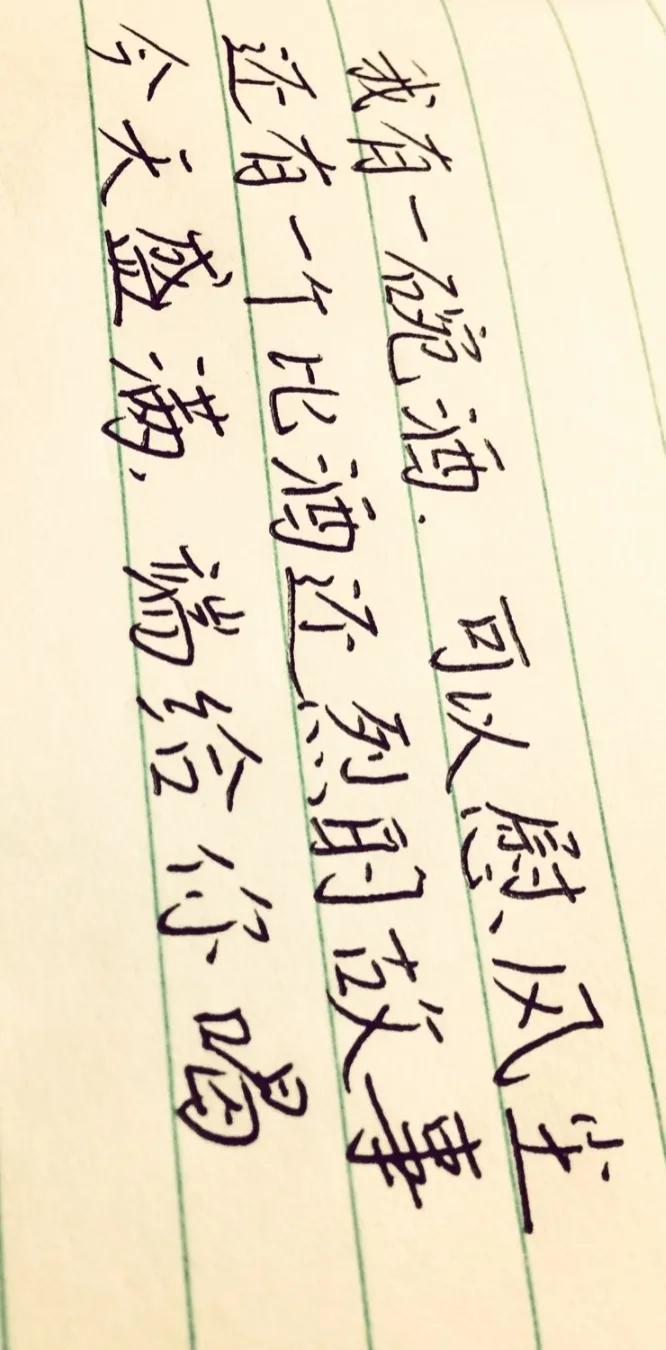 我有一碗酒. 可以慰风尘
还有一个比酒还烈的故事
今天盛满. 端给你喝